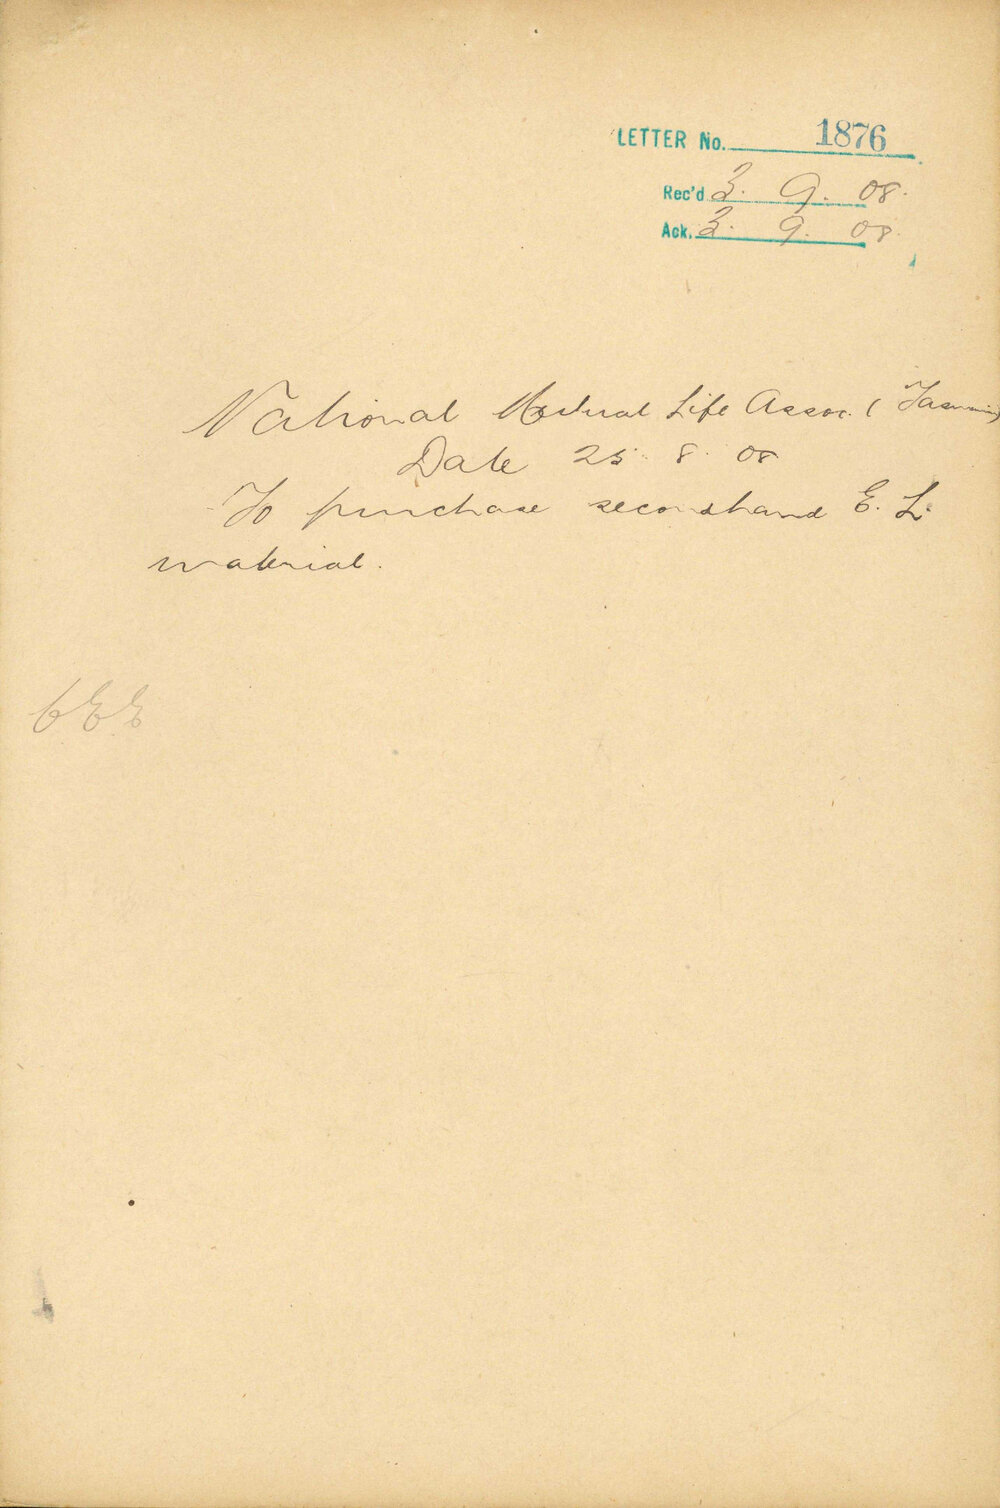 LETTER No. 1876
Rec'd 3. 9. 08.
Ack. 3. 9. 08.
National Mutual Life Assoc. (
Date 25. 8. 08
To purchase secondhand E. L.
material.